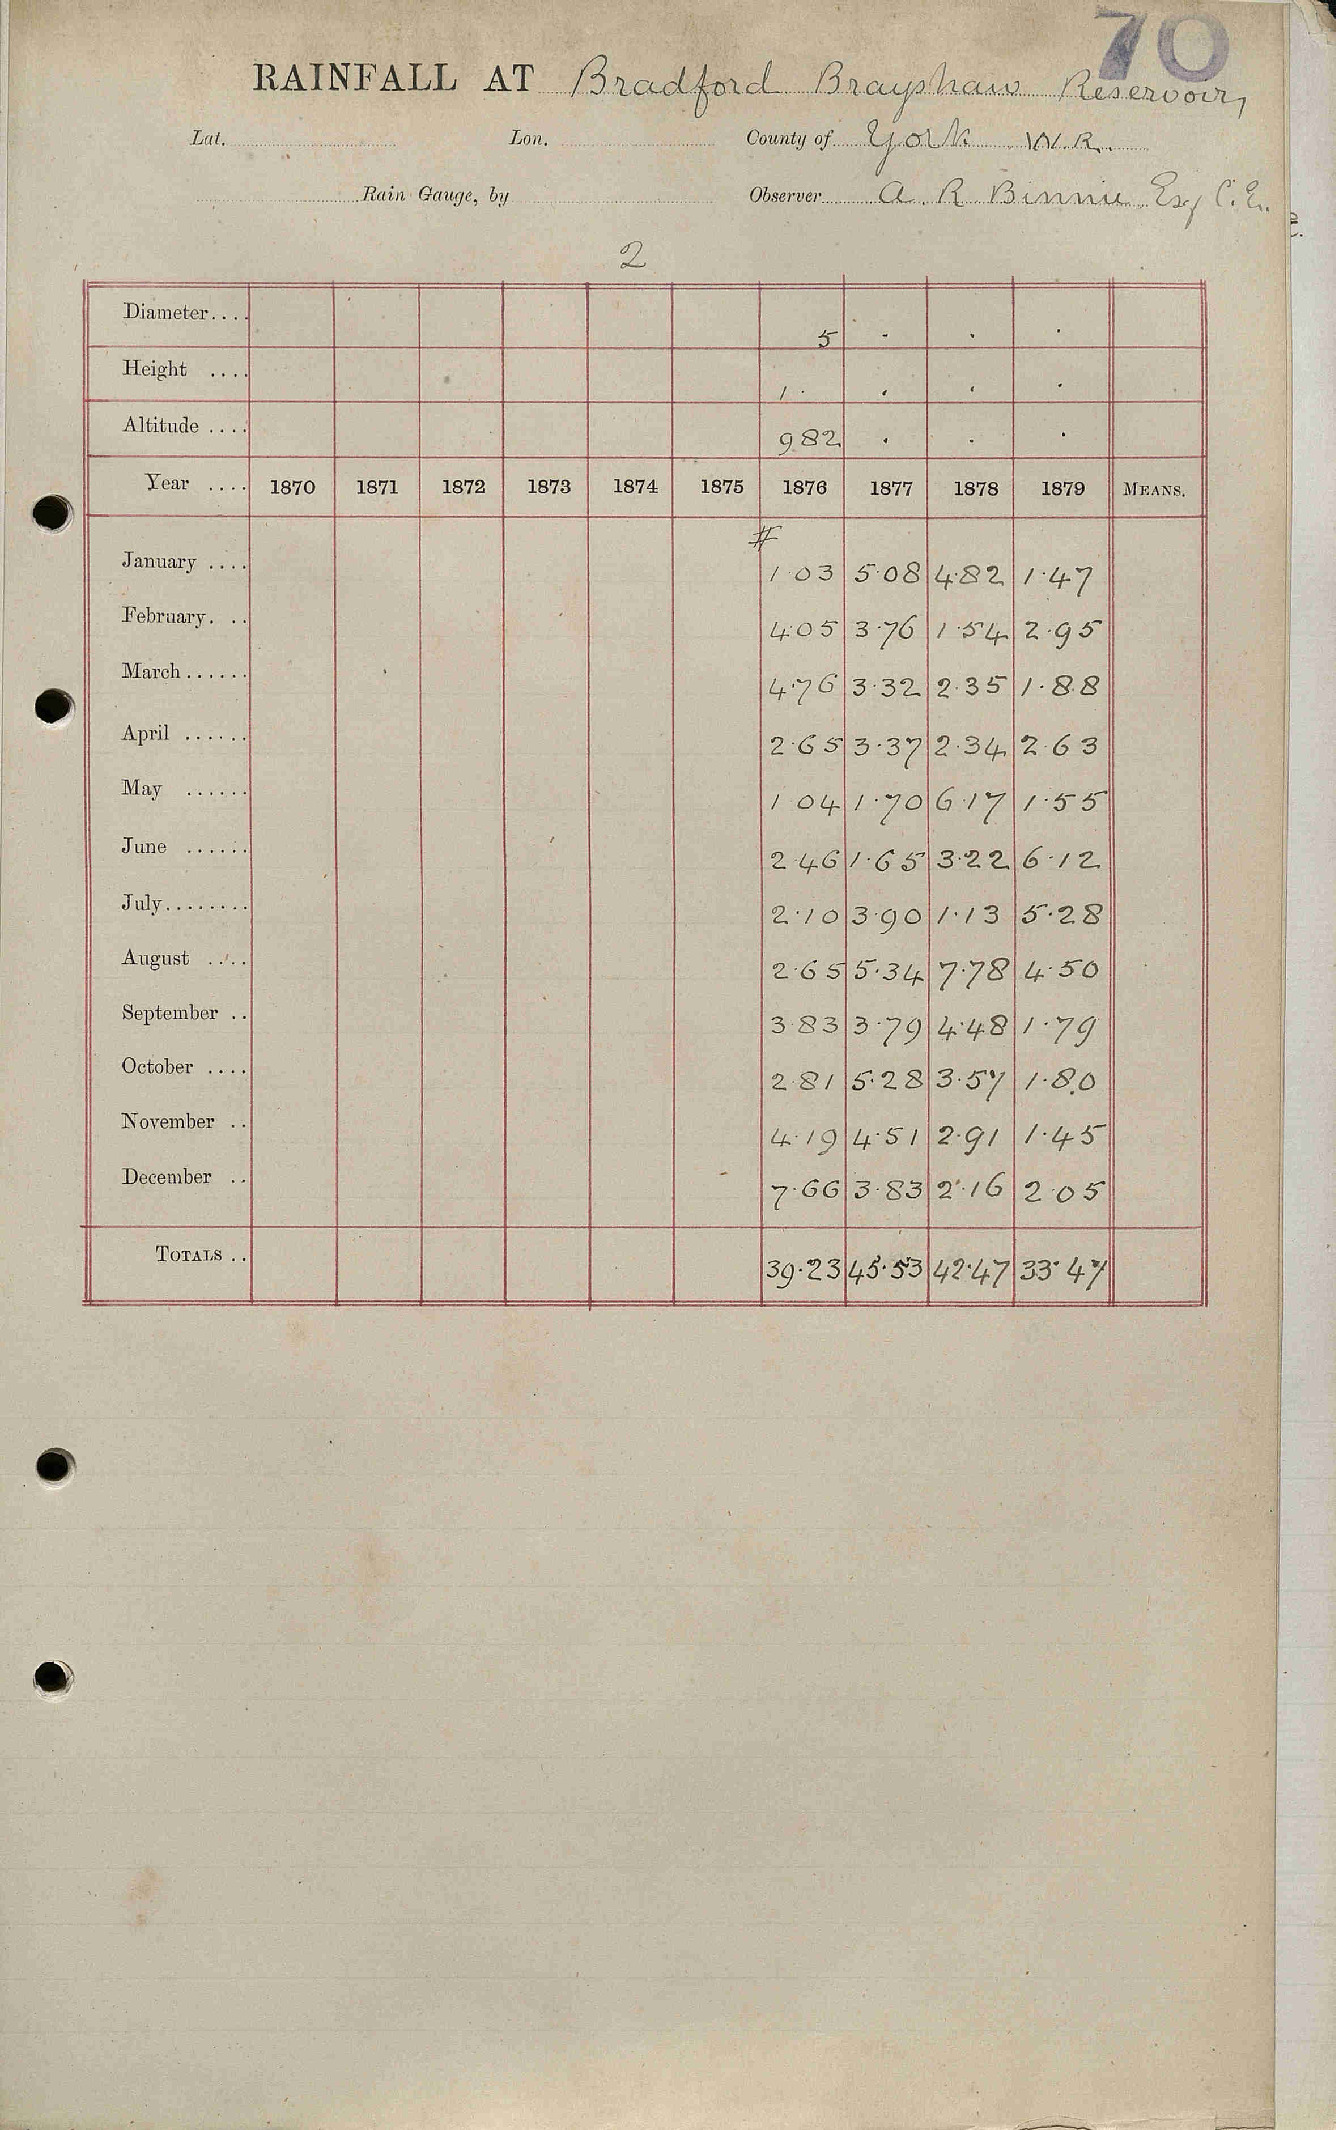 70
RAINFALL AT Bradford Brayshaw Reservoir,
Lat. Lon. County of York W.R.
Rain Gauge, by Observer A. R Binnie Esq C.E.
2
Diameter.... 5 . . .
Height .... 1. . . .
Altitude .... 982 . . .
Year .... 1870 1871 1872 1873 1874 1875 1876 1877 1878 1879 MEANS.
#
January .... 1.03 5.08 4.82 1.47
February... 4.05 3.76 1.54 2.95
March...... 4.76 3.32 2.35 1.88
April ...... 2.65 3.37 2.34 2.63
May ...... 1.04 1.70 6.17 1.55
June ...... 2.46 1.65 3.22 6.12
July........ 2.10 3.90 1.13 5.28
August .... 2.65 5.34 7.78 4.50
September .. 3.83 3.79 4.48 1.79
October .... 2.81 5.28 3.57 1.80
November .. 4.19 4.51 2.91 1.45
December .. 7.66 3.83 2.16 2.05
TOTALS .. 39.23 45.53 42.47 33.47